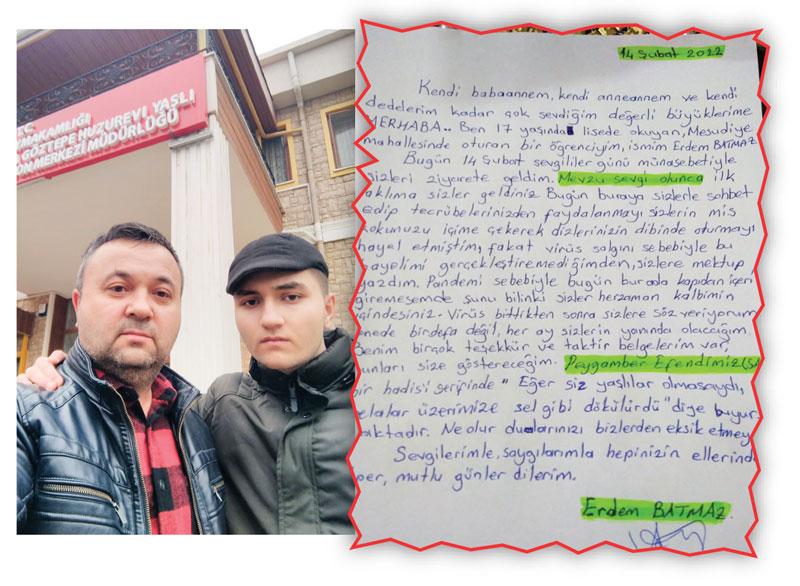 T.C.
GÖZTEPE HUZUREVİ YAŞLI
MERKEZİ MÜDÜRLÜĞÜ
14 Şubat 2022
Kendi babaannem, kendi anneannem ve kendi
dedelerim kadar çok sevdiğim değerli büyüklerime
MERHABA.. Ben 17 yaşında lisede okuyan, Mesudiye
mahallesinde oturan bir öğrenciyim, ismim Erdem BATMAZ
Bugün 14 Şubat sevgililer günü münasebetiyle
sizleri ziyarete geldim. Mevzu sevgi olunca ilk
aklıma sizler geldiniz Bugün buraya sizlerle sohbet
edip tecrübelerinizden faydalanmayı sizlerin mis
kokunuzu içime çekerek dizlerinizin dibinde oturmayı
hayel etmiştim, fakat virüs salgını sebebiyle bu
gayelimi gerçekleştiremediğimden, sizlere mektup
yazdım. Pandemi sebebiyle bugün burada kapıdan içeri
giremesemde şunu bilinki sizler herzaman kalbimin
içindesiniz. Virüs bittikten sonra sizlere söz veriyorum
senede birdefa değil, her ay sizlerin yanında olacağım
Benim birçok teşekkür ve taktir belgelerim var,
bunları size göstereceğim. Peygamber Efendimiz (S
bir hadis'i şerifinde " Eğer siz yaşlılar olmasaydı,
belalar üzerimize sel gibi dökülürdü" diye buyur
maktadır. Ne olur dualarınızı bizlerden eksik etmey
Sevgilerimle, saygılarımla hepinizin ellerind
öper, mutlu günler dilerim.
Erdem BATMAZ